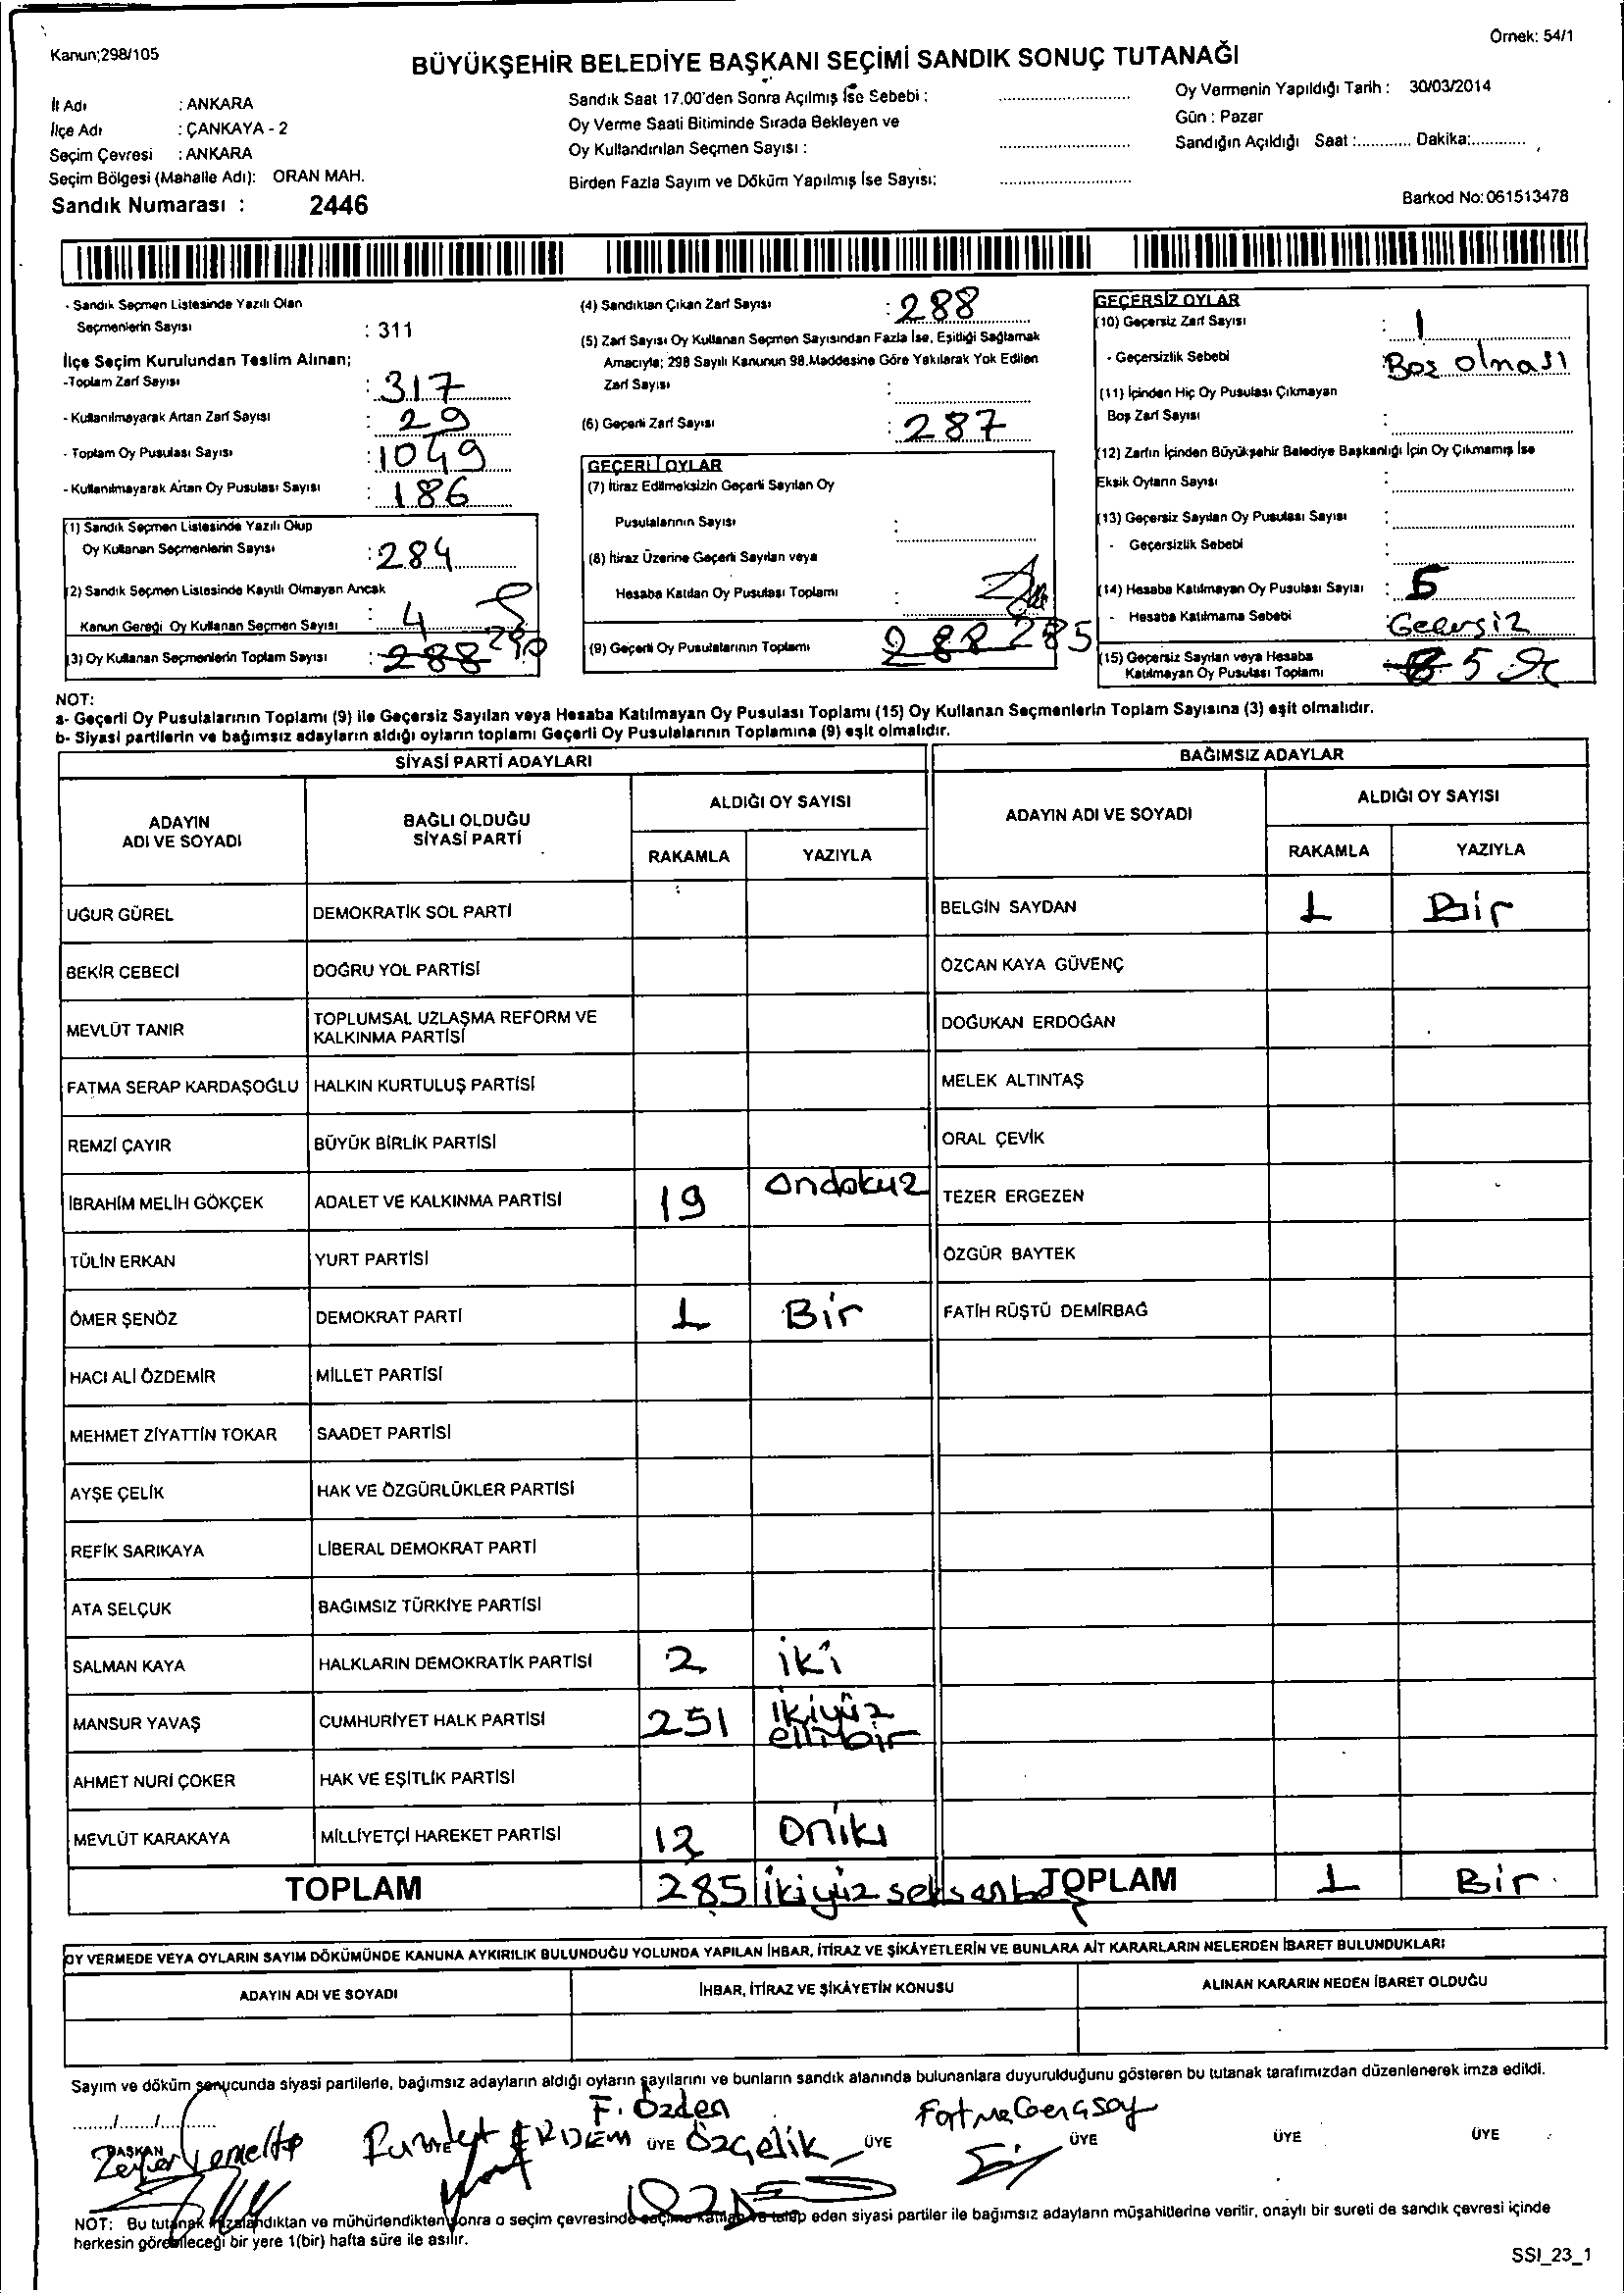 Kanun;298/105
Örnek: 54/1
BÜYÜKŞEHİR BELEDİYE BAŞKANI SEÇİMİ SANDIK SONUÇ TUTANAĞI
İl Adı : ANKARA
İlçe Adı : ÇANKAYA - 2
Seçim Çevresi : ANKARA
Seçim Bölgesi (Mahalle Adı): ORAN MAH.
Sandık Numarası : 2446
Sandık Saat 17.00'den Sonra Açılmış İse Sebebi :
Oy Verme Saati Bitiminde Sırada Bekleyen ve
Oy Kullandırılan Seçmen Sayısı :
Birden Fazla Sayım ve Döküm Yapılmış İse Sayısı:
Oy Vermenin Yapıldığı Tarih : 30/03/2014
Gün : Pazar
Sandığın Açıldığı Saat :............ Dakika:............
Barkod No: 061513478
- Sandık Seçmen Listesinde Yazılı Olan
Seçmenlerin Sayısı : 311
İlçe Seçim Kurulundan Teslim Alınan;
-Toplam Zarf Sayısı : 317
- Kullanılmayarak Artan Zarf Sayısı : 29
- Toplam Oy Pusulası Sayısı : 1049
- Kullanılmayarak Artan Oy Pusulası Sayısı : 186
(1) Sandık Seçmen Listesinde Yazılı Olup
Oy Kullanan Seçmenlerin Sayısı : 284
(2) Sandık Seçmen Listesinde Kayıtlı Olmayan Ancak
Kanun Gereği Oy Kullanan Seçmen Sayısı : 4
(3) Oy Kullanan Seçmenlerin Toplam Sayısı : 288 290
(4) Sandıktan Çıkan Zarf Sayısı : 288
(5) Zarf Sayısı Oy Kullanan Seçmen Sayısından Fazla İse, Eşitliği Sağlamak
Amacıyla; 298 Sayılı Kanunun 98.Maddesine Göre Yakılarak Yok Edilen
Zarf Sayısı :
(6) Geçerli Zarf Sayısı : 287
GEÇERLİ OYLAR
(7) İtiraz Edilmeksizin Geçerli Sayılan Oy
Pusulalarının Sayısı :
(8) İtiraz Üzerine Geçerli Sayılan veya
Hesaba Katılan Oy Pusulası Toplamı :
(9) Geçerli Oy Pusulalarının Toplamı 288 285
GEÇERSİZ OYLAR
(10) Geçersiz Zarf Sayısı : 1
- Geçersizlik Sebebi : Boş olması
(11) İçinden Hiç Oy Pusulası Çıkmayan
Boş Zarf Sayısı :
(12) Zarfın İçinden Büyükşehir Belediye Başkanlığı İçin Oy Çıkmamış İse
Eksik Oyların Sayısı :
(13) Geçersiz Sayılan Oy Pusulası Sayısı :
- Geçersizlik Sebebi :
(14) Hesaba Katılmayan Oy Pusulası Sayısı : 5
- Hesaba Katılmama Sebebi :
(15) Geçersiz Sayılan veya Hesaba
Katılmayan Oy Pusulası Toplamı 5
NOT:
a- Geçerli Oy Pusulalarının Toplamı (9) ile Geçersiz Sayılan veya Hesaba Katılmayan Oy Pusulası Toplamı (15) Oy Kullanan Seçmenlerin Toplam Sayısına (3) eşit olmalıdır.
b- Siyasi partilerin ve bağımsız adayların aldığı oyların toplamı Geçerli Oy Pusulalarının Toplamına (9) eşit olmalıdır.
SİYASİ PARTİ ADAYLARI
ADAYIN ADI VE SOYADI BAĞLI OLDUĞU SİYASİ PARTİ ALDIĞI OY SAYISI
RAKAMLA YAZIYLA
UĞUR GÜREL DEMOKRATİK SOL PARTİ
BEKİR CEBECİ DOĞRU YOL PARTİSİ
MEVLÜT TANIR TOPLUMSAL UZLAŞMA REFORM VE
KALKINMA PARTİSİ
FATMA SERAP KARDAŞOĞLU HALKIN KURTULUŞ PARTİSİ
REMZİ ÇAYIR BÜYÜK BİRLİK PARTİSİ
İBRAHİM MELİH GÖKÇEK ADALET VE KALKINMA PARTİSİ 19 Ondokuz
TÜLİN ERKAN YURT PARTİSİ
ÖMER ŞENÖZ DEMOKRAT PARTİ 1 Bir
HACI ALİ ÖZDEMİR MİLLET PARTİSİ
MEHMET ZİYATTİN TOKAR SAADET PARTİSİ
AYŞE ÇELİK HAK VE ÖZGÜRLÜKLER PARTİSİ
REFİK SARIKAYA LİBERAL DEMOKRAT PARTİ
ATA SELÇUK BAĞIMSIZ TÜRKİYE PARTİSİ
SALMAN KAYA HALKLARIN DEMOKRATİK PARTİSİ 2 iki
MANSUR YAVAŞ CUMHURİYET HALK PARTİSİ 251 ikiyüz
ellibir
AHMET NURİ ÇOKER HAK VE EŞİTLİK PARTİSİ
MEVLÜT KARAKAYA MİLLİYETÇİ HAREKET PARTİSİ 12 Oniki
TOPLAM 285 ikiyüz seksenbeş
BAĞIMSIZ ADAYLAR
ADAYIN ADI VE SOYADI ALDIĞI OY SAYISI
RAKAMLA YAZIYLA
BELGİN SAYDAN 1 Bir
ÖZCAN KAYA GÜVENÇ
DOĞUKAN ERDOĞAN
MELEK ALTINTAŞ
ORAL ÇEVİK
TEZER ERGEZEN
ÖZGÜR BAYTEK
FATİH RÜŞTÜ DEMİRBAĞ
TOPLAM 1 Bir
OY VERMEDE VEYA OYLARIN SAYIM DÖKÜMÜNDE KANUNA AYKIRILIK BULUNDUĞU YOLUNDA YAPILAN İHBAR, İTİRAZ VE ŞİKÂYETLERİN VE BUNLARA AİT KARARLARIN NELERDEN İBARET BULUNDUKLARI
ADAYIN ADI VE SOYADI İHBAR, İTİRAZ VE ŞİKÂYETİN KONUSU ALINAN KARARIN NEDEN İBARET OLDUĞU
Sayım ve döküm sonucunda siyasi partilerle, bağımsız adayların aldığı oyların sayılarını ve bunların sandık alanında bulunanlara duyurulduğunu gösteren bu tutanak tarafımızdan düzenlenerek imza edildi.
......./......./............
F. Özden
BAŞKAN ERDEM ÜYE Özçelik ÜYE ÜYE ÜYE ÜYE
NOT: Bu tutanak imzalandıktan ve mühürlendikten sonra o seçim çevresinde seçime katılan ve talep eden siyasi partiler ile bağımsız adayların müşahitlerine verilir, onaylı bir sureti de sandık çevresi içinde
herkesin görebileceği bir yere 1(bir) hafta süre ile asılır.
SSI_23_1